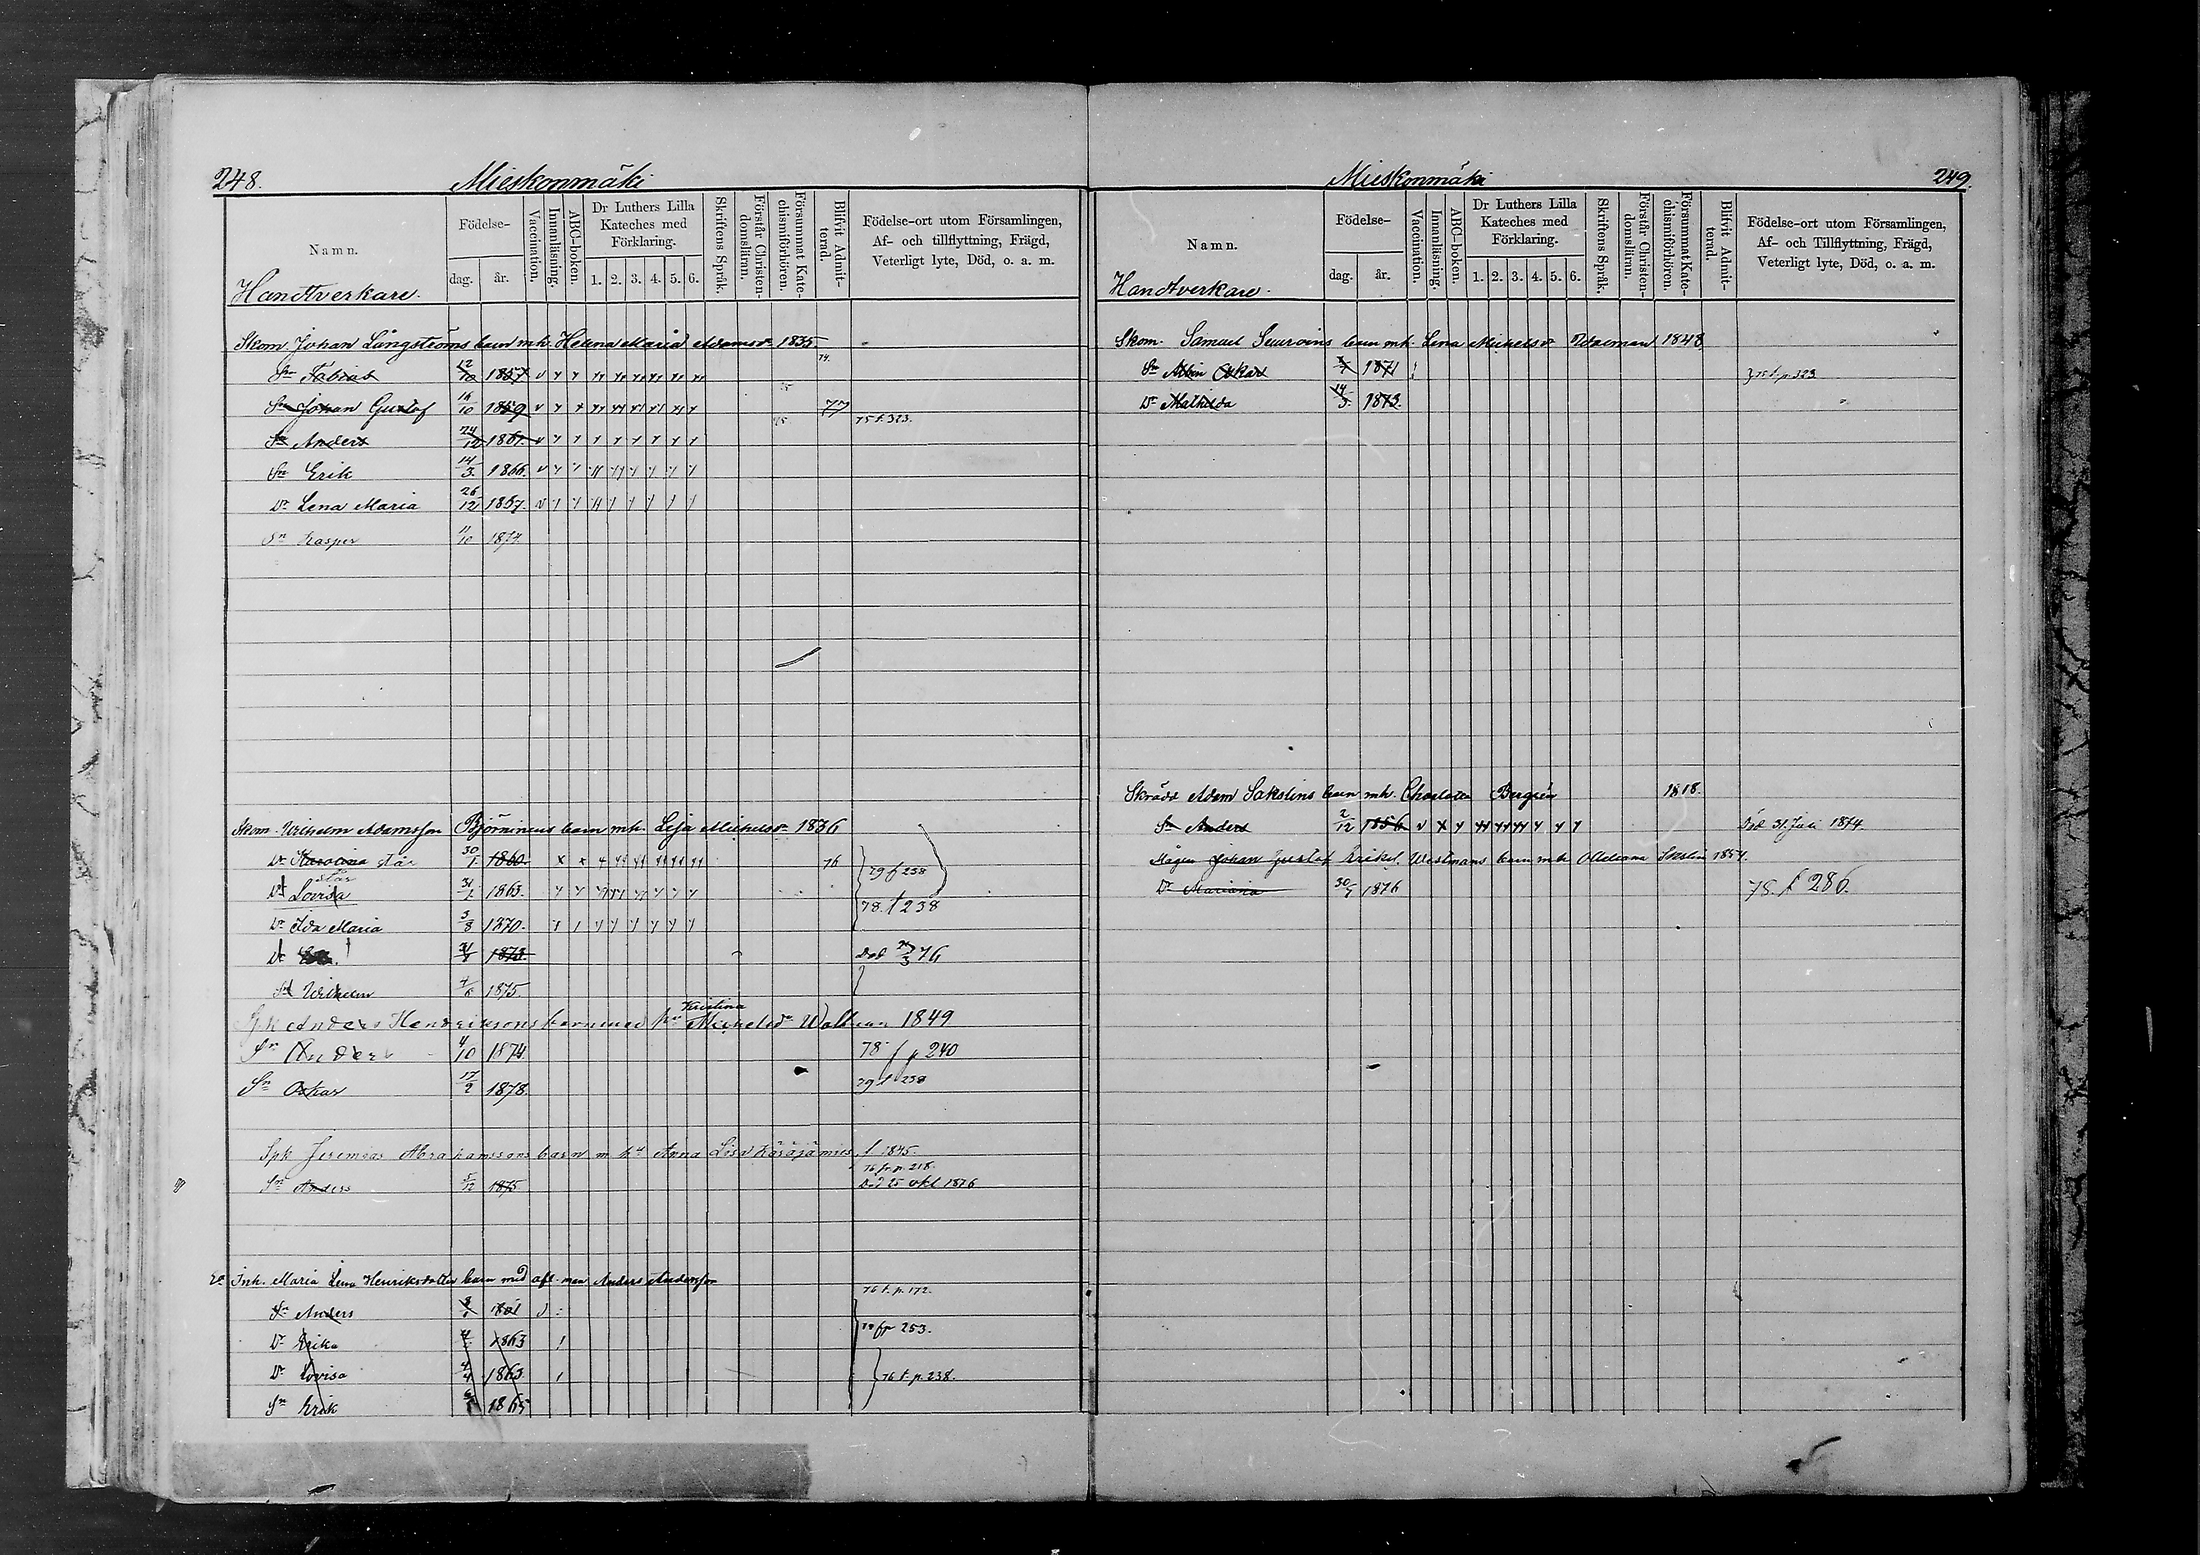 248.
Mieskonmäki
Namn.
Handtverkare.
Födelse-
dag.
år.
Vaccination.
Innanläsning.
ABC-boken.
Dr Luthers Lilla
Kateches med
Förklaring.
1. 2. 3. 4. 5. 6.
Skriftens Språk.
Förstår Christen-
domsläran.
Försummat Kate-
chismiförhören.
Blifvit Admit-
terad.
Födelse-ort utom Församlingen,
Af- och tillflyttning, Frägd,
Veterligt lyte, Död, o. a. m.
Skom. Johan Långströms barn m. h. Helena Maria Adamsdr 1835
Sn Tobias 12/10 1857 74.
Sn Johan Gustaf 16/10 1859 77
75 t. 323.
Sn Anders 24/12 1861.
Sn Erik 14/3. 1866.
Dr Lena Maria 26/12 1867.
Sn Kasper 11/10 1874.
Skom. Wilhelm Adamsson Björninens barn m. h. Lisa Michelsdr 1836
Dr Karolina står 30/1. 1860. 76
79 f 238
Dr Lovisa står 31/1. 1863.
78. f 238
Dr Ida Maria 3/8 1870.
Dr 1873. Död 3 76
Sn Wilhelm 1875.
Spk Anders Hendriksons barn med hu Kristina Michelsdr Wallman 1849
Sn Anders 4/10 1874. 78 f p 240
Sn Oskar 17/2 1878. 79 f 238
Spk Jeremias Abrahamssons barn m hu Anna Lisa Käräjämies f 1845.
76 fr p. 218.
Sn Anders 5/12 1875 Död 25 okt 1876
Enk. Inh. Maria Lena Henriksdotter barn med afl. man Anders Andersson
76 t. p. 172.
Sn Anders 1861
Dr Erika 1863 78 fr 253.
Dr Lovisa 4/4 1863. 76 t. p. 238.
Sn Erik 1865
Mieskonmäki
249.
Namn.
Handtverkare.
Födelse-
dag.
år.
Vaccination.
Innanläsning.
ABC-boken.
Dr Luthers Lilla
Kateches med
Förklaring.
1. 2. 3. 4. 5. 6.
Skriftens Språk.
Förstår Christen-
domsläran.
Försummat Kate-
chismiförhören.
Blifvit Admit-
terad.
Födelse-ort utom Församlingen,
Af- och Tillflyttning, Frägd,
Veterligt lyte, Död, o. a. m.
Skom. Samuel barn mh. Lena Michelsdr 1848.
Sn Albin Oskar 1871 75 t. p. 323
Dr Mathilda 14/3. 1873.
Skrädd Adam Sakslins barn mh. Charlotta Bergrén 1818.
Sn Anders 2/12 1856 Död 31. Juli 1874.
Mågen Johan Gustaf Erikss. Westmans barn mh 1854.
Dr Mariana 30/7 1876 78. f 286.